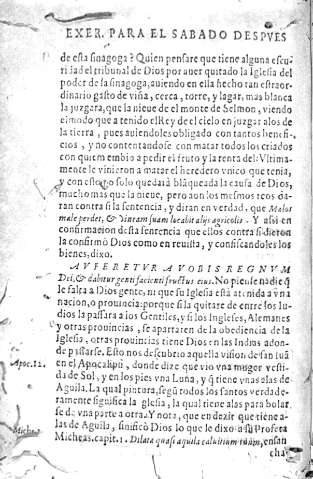 EXER. PARA EL SABADO DESPVES
de esta sinagoga? Quien pensare que tiene alguna escu
ridad el tribunal de Dios por auer quitado la Iglesia del
poder de la sinagoga, auiendo en ella hecho tan estraor-
dinario gasto de viña, cerca, torre, y lagar, mas blanca
la juzgara, que la nieue de el monte de Selmon, viendo
el modo que a tenido el Rey del cielo en juzgar a los de
la tierra, pues auiendoles obligado con tantos benefi-
cios, y no contentandose con matar todos los criados
con quiem embio a pedir el fruto y la renta del: Vltima-
mente le vinieron a matar el heredero vnico que tenia,
y con esto no solo quedará blãqueada la causa de Dios,
mucho mas que la nieue, pero aun los mesmos reos da-
ran contra si la sentencia, y diran en verdad. que Malos
male perdet, & vineam suam locabit alijs agricolis. Y assi en
confirmacion desta sentencia que ellos contra si dieron
la confirmò Dios como en reuista, y confiscandoles los
bienes, dixo.
AVFERETVR A VOBIS REGNVM
Dei, & dabitur genti facienti fructus eius. No piense nadie q̃
le falta a Dios gente, ni que su Iglesia està atenida a vna
nacion, o prouincia: porque si la quitare de entre los Iu-
dios la passara a los Gentiles, y si los Ingleses, Alemanes
y otras prouincias, se apartaren de la obediencia de la
Iglesia, otras prouincias tiene Dios en las Indias adon-
de passarse. Esto nos descubrio aquella vision de san Iuã
Apoc. 12. en el Apocalipsi, donde dize que vio vna muger vesti-
da de Sol, y en los pies vna Luna, y q̃ tiene vnas alas de
Aguila. La qual pintura, segũ todos los santos verdade-
ramente significa la iglesia, la qual tiene alas para bolar
se de vna parte a otra. Y nota, que en dezir que tiene a-
las de Aguila, sinificò Dios lo que le dixo a su Profeta
Miche. 1. Micheas. capit. 1. Dilata quasi aquila caluitium tuum, ensan
cha